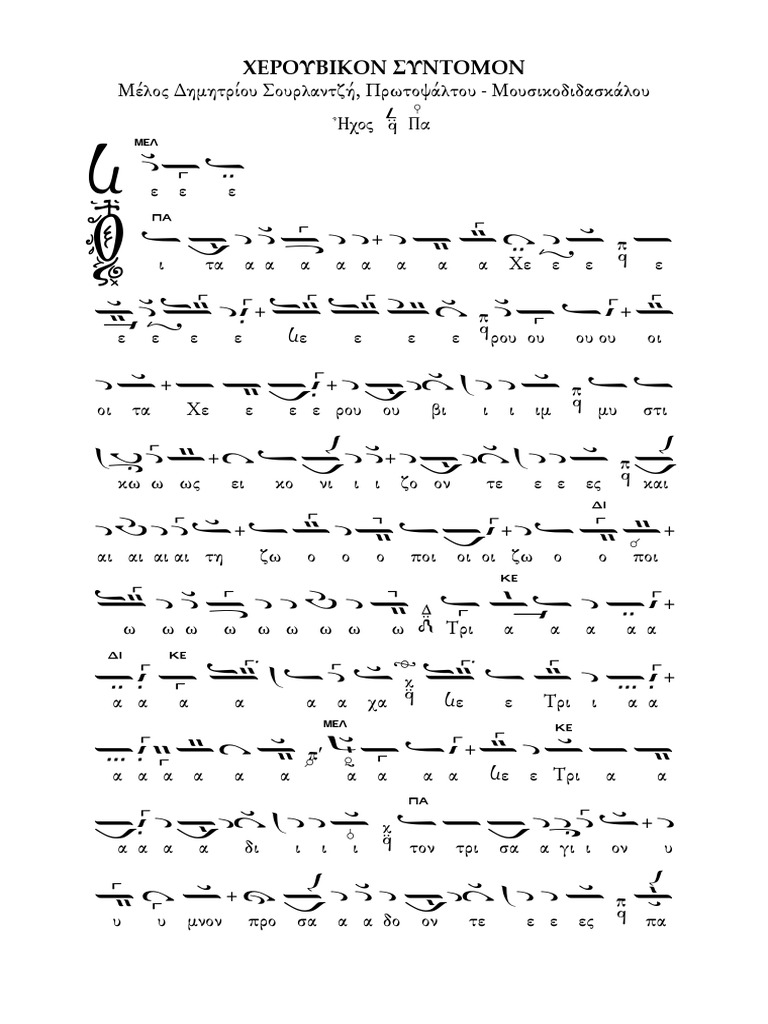 ΧΕΡΟΥΒΙΚΟΝ ΣΥΝΤΟΜΟΝ
Μέλος Δημητρίου Σουρλαντζή, Πρωτοψάλτου - Μουσικοδιδασκάλου
Ἦχος Πα
ΜΕΛ
ε ε ε
ΠΑ
ι τα α α α α α α α α Χε ε ε ε
ε ε ε ε ε ε ε ε ρου ου ου ου οι
οι τα Χε ε ε ε ρου ου βι ι ι ιμ μυ στι
κω ω ως ει κο νι ι ι ζο ον τε ε ε ες και
ΔΙ
αι αι αι αι τη ζω ο ο ο ποι οι οι ζω ο ο ποι
ΚΕ
ω ω ω ω ω ω ω ω Τρι α α α α α
ΔΙ ΚΕ
α α α α α α χα ε ε Τρι ι α α
ΜΕΛ ΚΕ
α α α α α α α α α α α ε ε Τρι α α
ΠΑ
α α α α δι ι ι ι τον τρι σα α γι ι ον υ
υ υ μνον προ σα α α δο ον τε ε ε ες πα